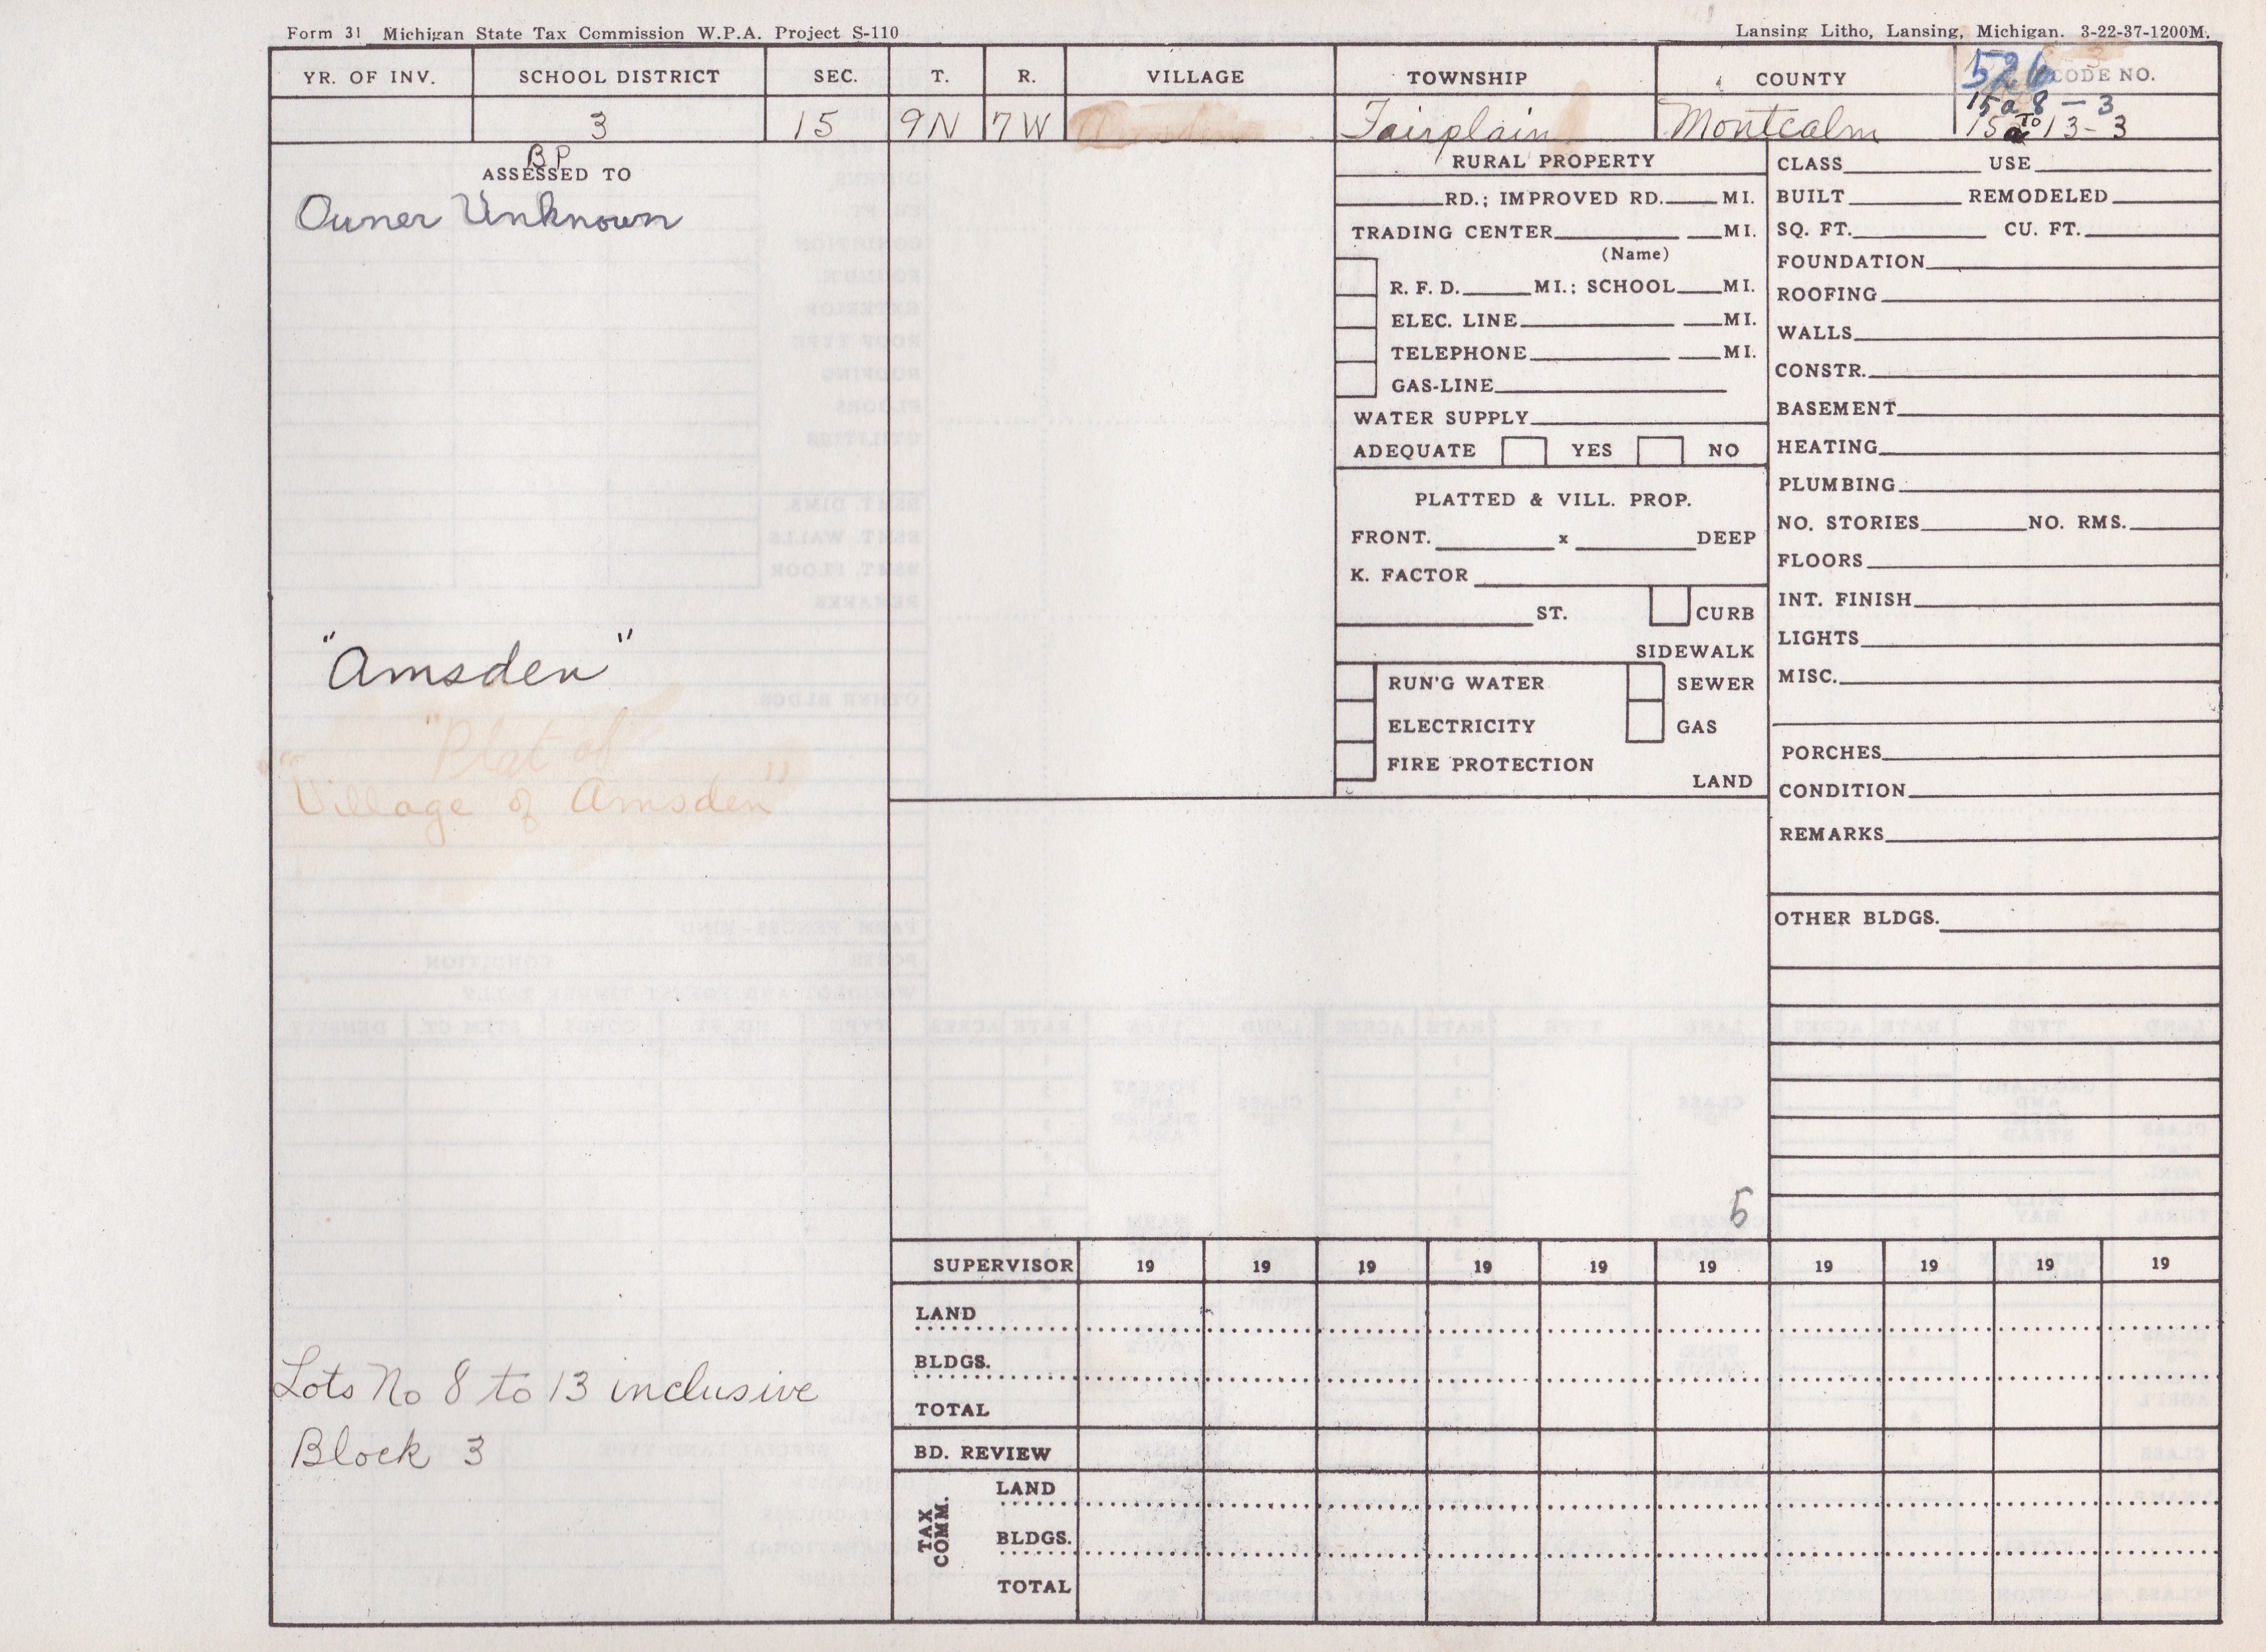 Form 31 Michigan State Tax Commission W.P.A. Project S-110
Lansing Litho, Lansing, Michigan. 3-22-37-1200M.
YR. OF INV. SCHOOL DISTRICT SEC. T. R. VILLAGE TOWNSHIP COUNTY CODE NO.
526
15a 8 - 3
3 15 9N 7W Amsden Fairplain Montcalm 15a To 13-3
BP
ASSESSED TO
Owner Unknown
"Amsden"
"Plat of
"Village of Amsden"
Lots No 8 to 13 inclusive
Block 3
RURAL PROPERTY
RD.; IMPROVED RD. MI.
TRADING CENTER MI.
(Name)
R. F. D. MI.; SCHOOL MI.
ELEC. LINE MI.
TELEPHONE MI.
GAS-LINE
WATER SUPPLY
ADEQUATE YES NO
PLATTED & VILL. PROP.
FRONT. x DEEP
K. FACTOR
ST. CURB
SIDEWALK
RUN'G WATER SEWER
ELECTRICITY GAS
FIRE PROTECTION
LAND
CLASS USE
BUILT REMODELED
SQ. FT. CU. FT.
FOUNDATION
ROOFING
WALLS
CONSTR.
BASEMENT
HEATING
PLUMBING
NO. STORIES NO. RMS.
FLOORS
INT. FINISH
LIGHTS
MISC.
PORCHES
CONDITION
REMARKS
OTHER BLDGS.
5
SUPERVISOR 19 19 19 19 19 19 19 19 19 19
LAND
BLDGS.
TOTAL
BD. REVIEW
TAX COMM.
LAND
BLDGS.
TOTAL